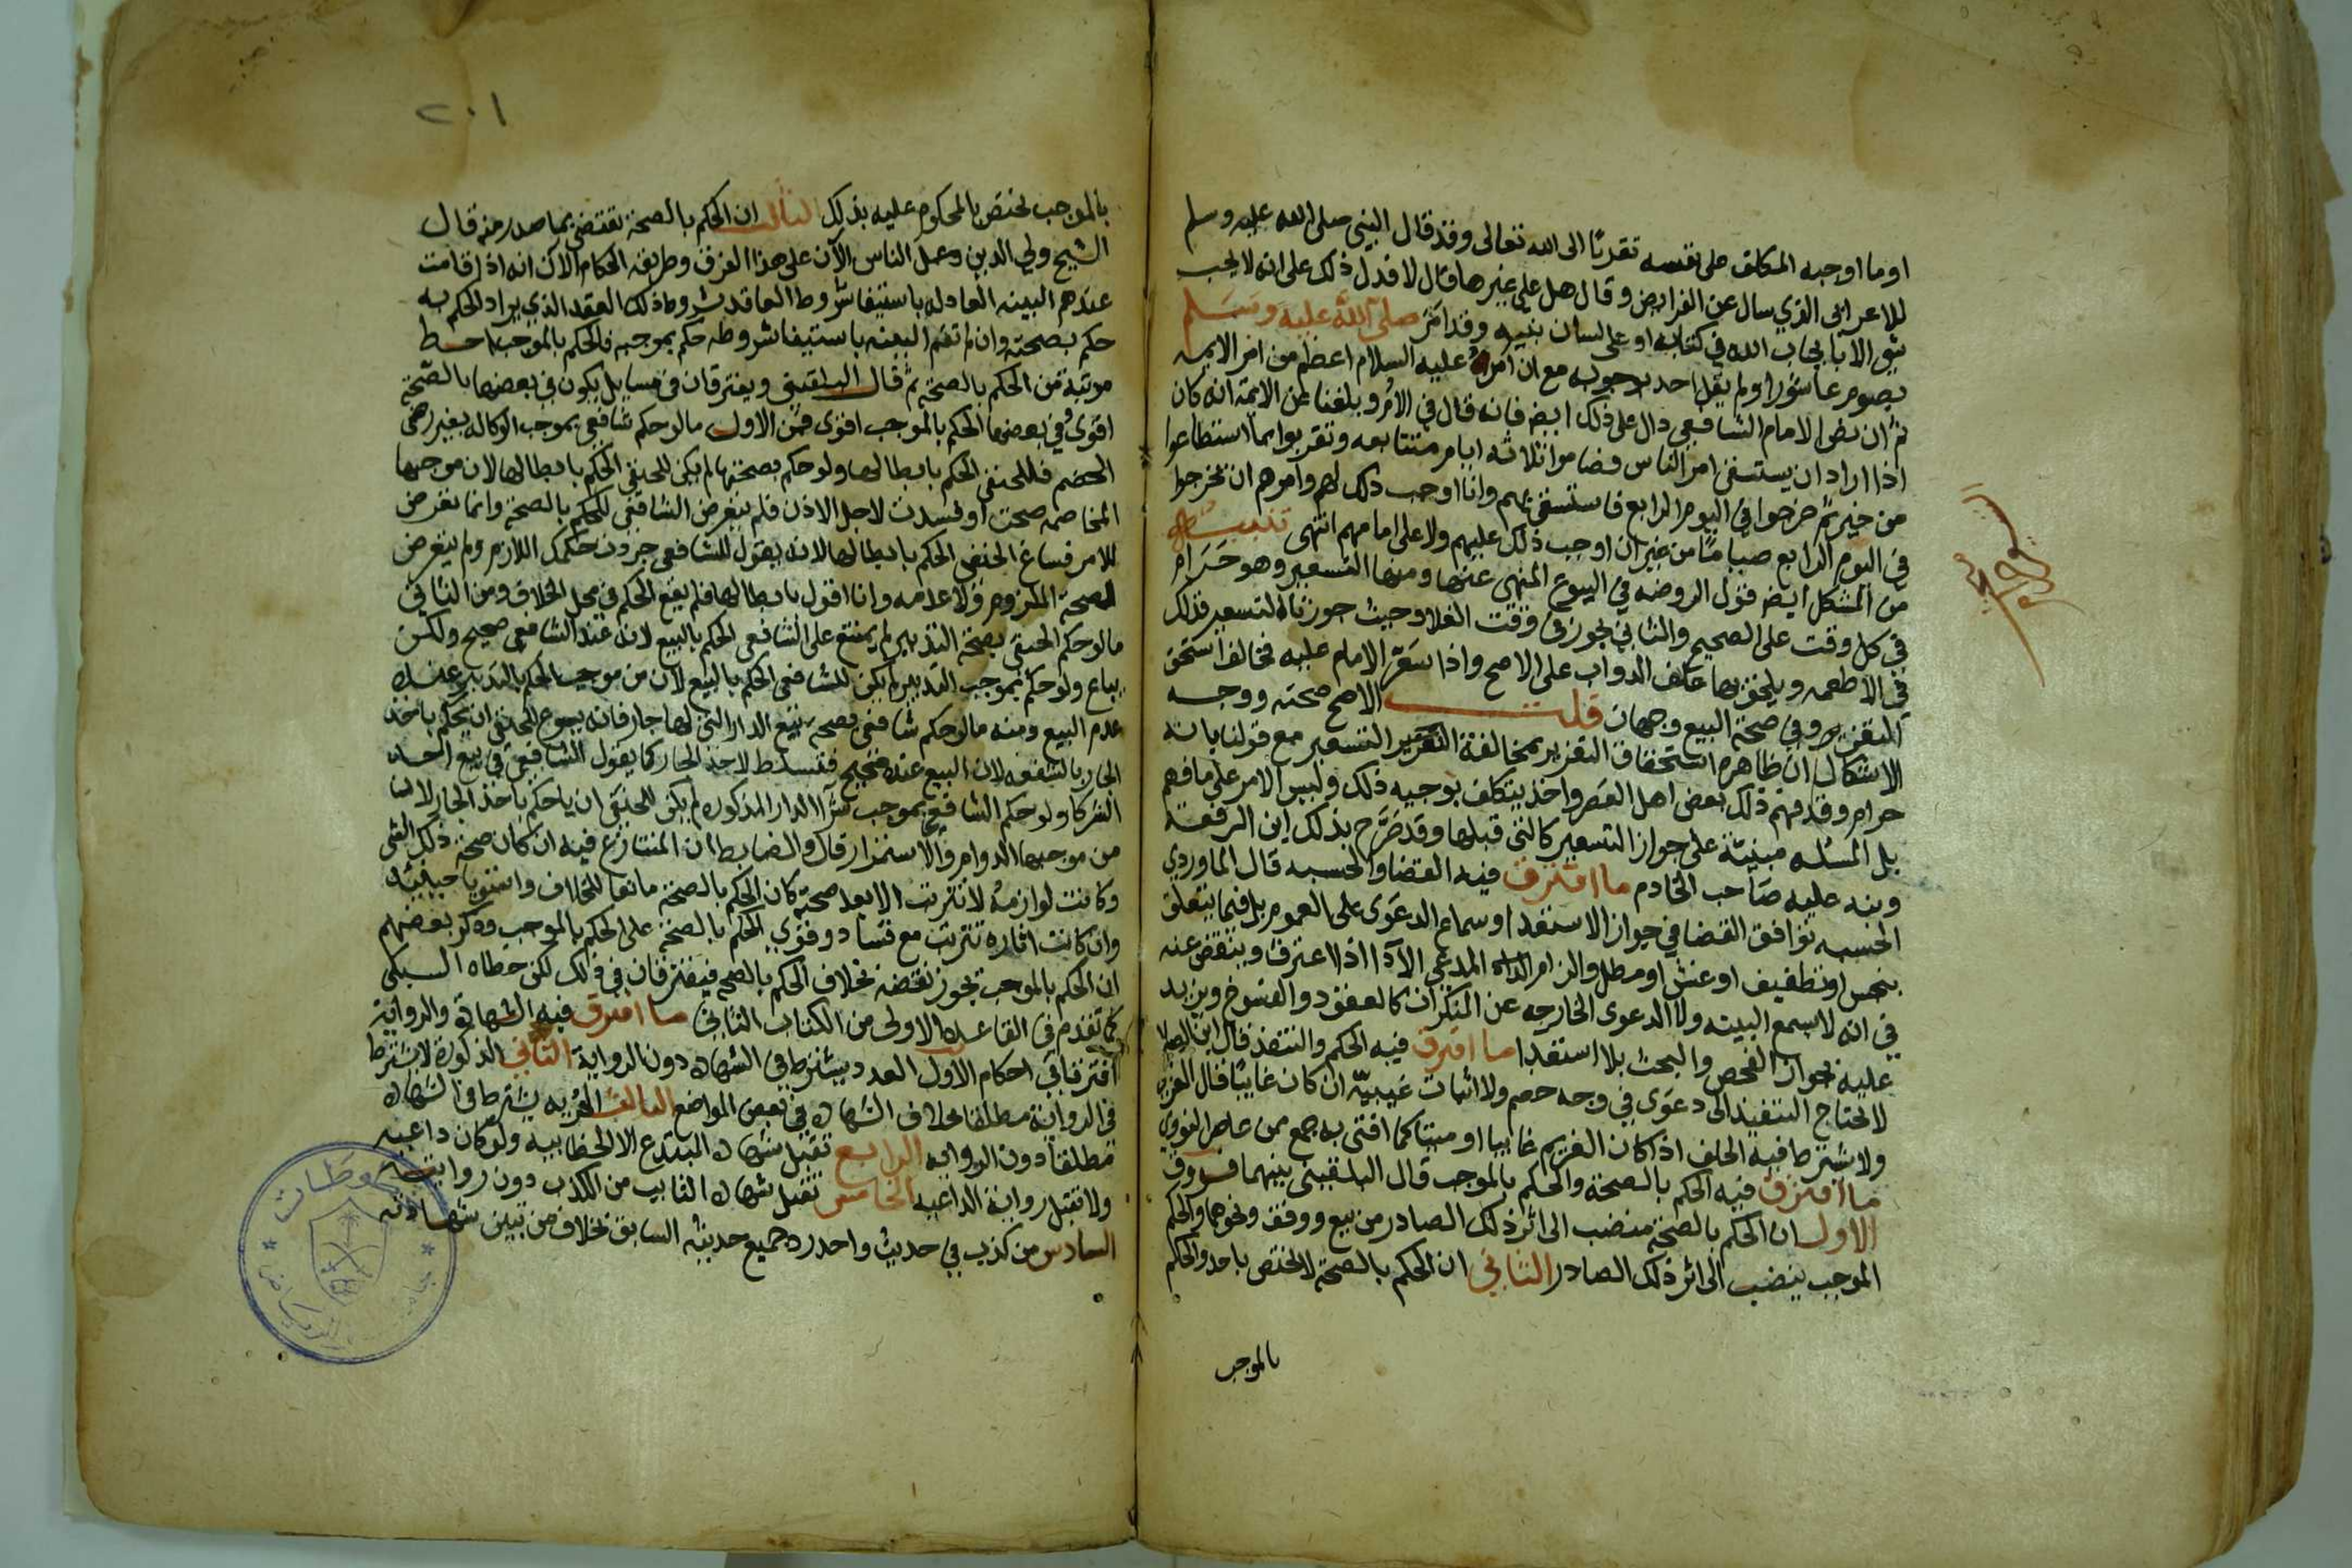 اوما اوجبه المكلف على نفسه تقربًا الى الله تعالى وقد قال النبي صلى الله عليه وسلم
للاعرابى الذي سال عن الفرايض وقال هل علي غيرها قال لا فدل ذلك على انه لا يجب
شي الا بايجاب الله في كتابه او على لسان نبيه وقد امر صلى الله عليه وسلم
بصوم عاشورا ولم يقل احد بوجوبه مع ان امره عليه السلام اعظم من امر الايمه
ثم ان نص الامام الشافعي دال على ذلك ايضا فانه قال في الام وبلغنا عن الايمة انه كان
اذا اراد ان يستسقى امر الناس فصاموا ثلاثه ايام متتابعه وتقربوا بما استطاعوا
من خير ثم خرجوا في اليوم الرابع فاستسقى بهم وانا احب ذلك لهم وامرهم ان يخرجوا
في اليوم الرابع صياما من غير ان اوجب ذلك عليهم ولا على امامهم انتهى تنبيه
من المشكل ايضا قول الروضه في البيوع المنهي عنها ومنها التسعير وهو حرام
في كل وقت على الصحيح والثاني يجوز في وقت الغلا وحيث جوزناه التسعير فذلك
في الاطعمه ويلحق بها علف الدواب على الاصح واذا سعر الامام عليه فخالف استحق
التعزير وفي صحة البيع وجهان قلت الاصح صحته ووجه
الاشكال ان ظاهره استحقاق التعزير بمخالفة التسعير مع قولنا بانه
حرام وقد فهم ذلك بعض اهل العصر واخذ يتكلف بوجيه ذلك وليس الامر على ما فهم
بل المسئله مبنية على جواز التسعير كالتي قبلها وقد صرح بذلك ابن الرفعة
ونبه عليه صاحب الخادم ما افترق فيه القضا والحسبه قال الماوردي
الحسبه توافق القضا في جواز الاستعدا وسماع الدعوى على العموم بل فيما يتعلق
ببخس او تطفيف او غش او مطل والزام المدعى الادا اذا اعترف وينقص عنه
في انه لا يسمع البينه ولا الدعوى الخارجه عن المنكرات كالعقود والفسوخ ويزيد
عليه بجواز الفحص والبحث بلا استعدا ما افترق فيه الحكم والتنفيذ قال ابن الصلاح
لا يحتاج التنفيذ الى دعوى في وجه خصم ولا اثبات غيبته ان كان غايبا قال الغزي
ولا يشترط فيه الحلف اذا كان الغريم غايبا او ميتا كما افتى به جمع من عاصر النووي
ما افترق فيه الحكم بالصحة والحكم بالموجب قال البلقيني بينهما فروق
الاول ان الحكم بالصحة منصب الى اثر ذلك الصادر من بيع ووقف ونحوهما والحكم
الموجب ينصب الى اثر ذلك الصادر الثاني ان الحكم بالصحة لا يختص باحد والحكم
بالموجب
٢٠١
بالموجب يختص بالمحكوم عليه بذلك الثالث ان الحكم بالصحة يقتضي بما صدر منه قال
الشيخ ولي الدين وعمل الناس الآن على هذا الفرق وطريقه الحكام الآن انه اذا قامت
عندهم البينه العادله باستيفا شروط العاقد شروط ذلك العقد الذي يراد الحكم به
حكم بصحته وان لم تقم البينه باستيفا شروطه حكم بموجبه فالحكم بالموجب احط
مرتبة من الحكم بالصحة ثم قال البلقيني ويفترقان في مسايل يكون في بعضها بالصحة
اقوى وفي بعضها الحكم بالموجب اقوى فمن الاول ما لو حكم شافعي بموجب الوكاله بغير رضى
الخصم فللحنفي الحكم بابطالها ولو حكم بصحتها لم يكن للحنفي الحكم بابطالها لان موجبها
المخاصمه صحت او فسدت لاجل الاذن فلم يتعرض الشافعي للحكم بالصحة وانما تعرض
للامر فساغ للحنفي الحكم بابطالها لانه يقول للشافعي حكمك اللازم ولم يتعرض
لصحة الملزوم ولا عدمه وانا اقول بابطالها فلم يقع الحكم في محل الخلاف ومن الثاني
ما لو حكم الحنفي بصحة التدبير لم يمتنع على الشافعي الحكم بالبيع لانه عند الشافعي صحيح ولكن
يباع ولو حكم بموجب التدبير لم يكن للشافعي الحكم بالبيع لان من موجب الحكم بالتدبير عنده
عدم البيع ومنه ما لو حكم شافعي بصحة بيع الدار التي لها جار فانه يسوغ للحنفي ان يحكم باخذ
الجار بالشفعه لان البيع عنده صحيح فتسلط لاخذ الجار كما يقول الشافعي في بيع احد
الشركا ولو حكم الشافعي بموجب شرا الدار المذكوره لم يكن للحنفي ان يحكم باخذ الجار لان
من موجبها الدوام والاستمرار قال والضابط ان المتنازع فيه ان كان صحة ذلك الشي
وكانت لوازمه لا تترتب الا بعد صحته كان الحكم بالصحة مانعا للخلاف واستويا حينئذ
وان كانت اثاره تترتب مع فساده قوي الحكم بالصحة على الحكم بالموجب وذكر بعضهم
ان الحكم بالموجب يجوز نقضه بخلاف الحكم بالصحه فيفترقان في ذلك لكن خطاه السبكي
كما تقدم في القاعده الاولى من الكتاب الثاني ما افترق فيه الشهادة والرواية
افترقا في احكام الاول العدد يشترط في الشهاده دون الرواية الثاني الذكورة لا يشترط
في الرواية مطلقا بخلاف الشهاده في بعض المواضع الثالث الحريه يشترط في الشهاده
مطلقا دون الروايه الرابع تقبل شهاده المبتدع الا الخطابيه ولو كان داعيه
ولا تقبل رواية الداعيه الخامس تقبل شهاده التايب من الكذب دون روايته
السادس من كذب في حديث واحد رد جميع حديثه السابق بخلاف من تبين شهادته